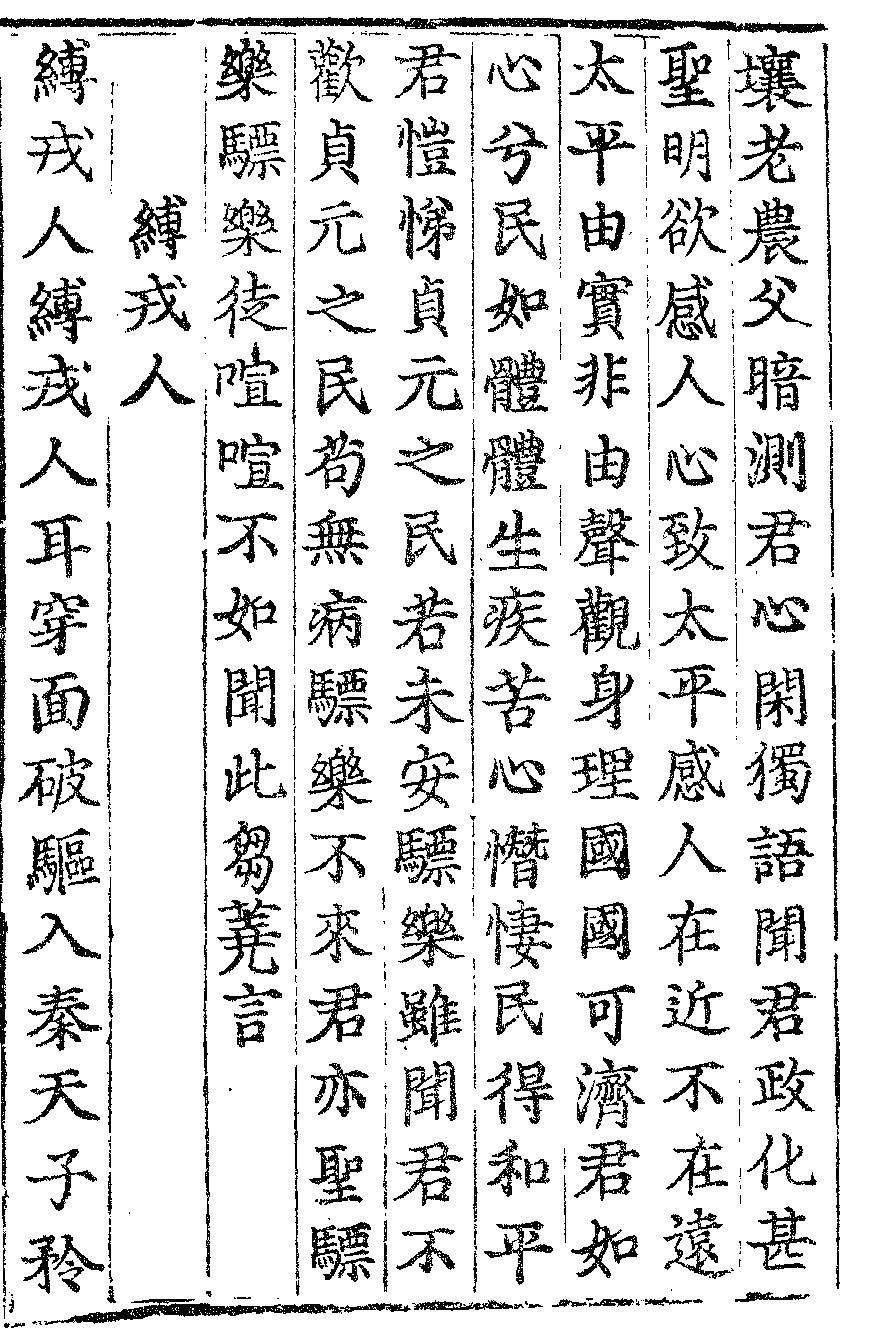 壤老農父暗測君心閑獨語聞君政化甚
聖明欲感人心致太平感人在近不在遠
太平由實非由聲觀身理國國可濟君如
心兮民如體體生疾苦心憯悽民得和平
君愷悌貞元之民若未安驃樂雖聞君不
歡貞元之民茍無病驃樂不來君亦聖驃
樂驃樂徒喧喧不如聞此芻蕘言
縛戎人
縛戎人縛戎人耳穿面破驅入秦天子矜